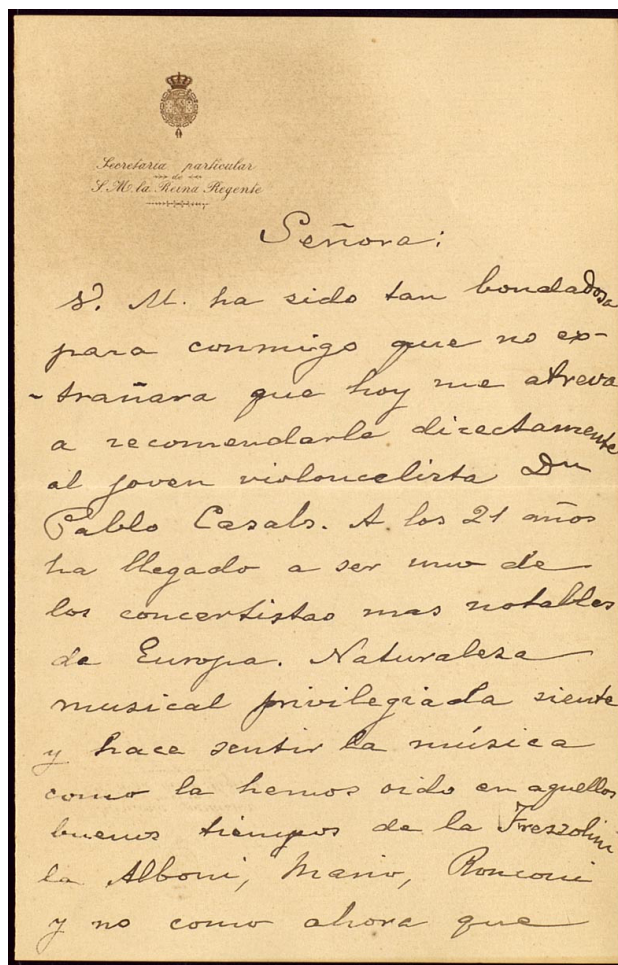 Secretaría particular
de
S. M. la Reina Regente
Señora:
V. M. ha sido tan bondadosa
para conmigo que no ex-
-trañara que hoy me atreva
a recomendarle directamente
al joven violoncelista Dn
Pablo Casals. A los 21 años
ha llegado a ser uno de
los concertistas mas notables
de Europa. Naturaleza
musical privilegiada siente
y hace sentir la música
como la hemos oido en aquellos
buenos tiempos de la Frezzolini
la Alboni, Mario, Ronconi
y no como ahora que